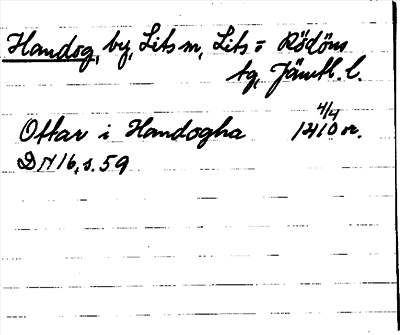 Handog, by, Lits sn, Lits= Rödöns
tg, Jämtl. l.
Ottar i Handogha 4/4 1410 or.
DN 16, s. 59